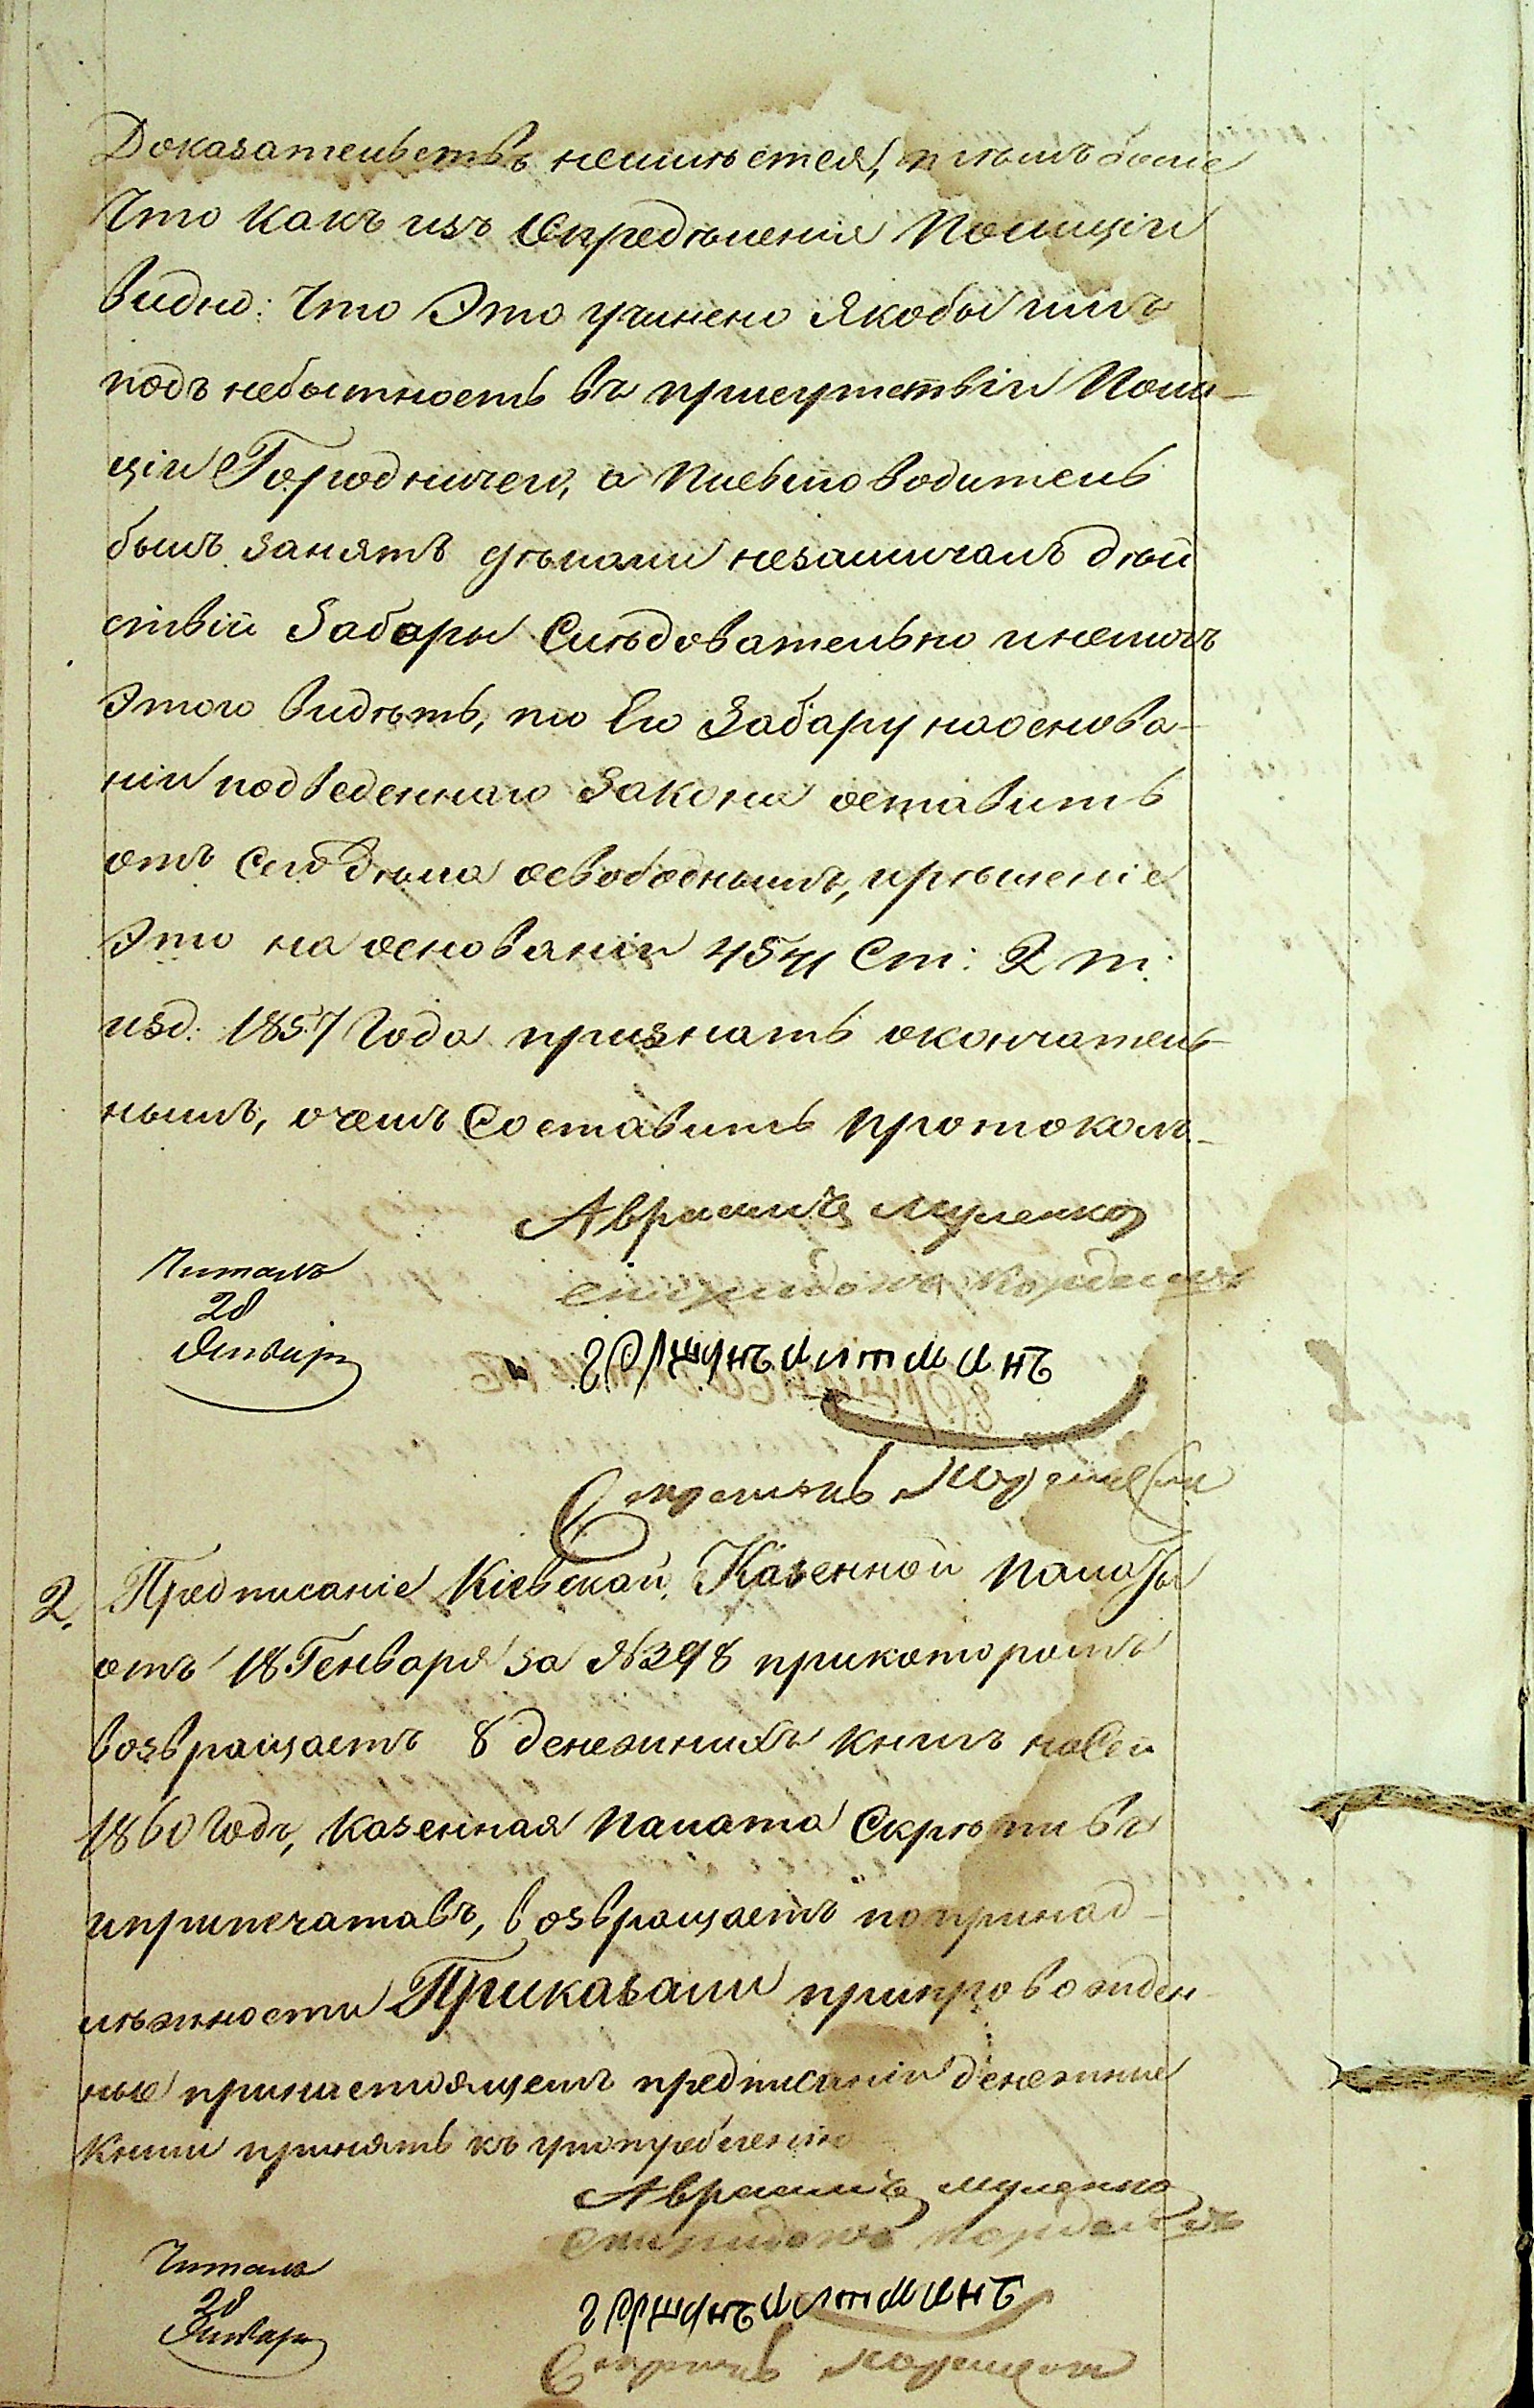 Доказательствъ неимѣется, и тѣмъ болие
Что какъ изъ Опредѣления Полиціи
видно: Что Это учинено Якобы имъ
подъ небытность въ присутствіи Поли-
ціи Городничего, а Письмоводитель
былъ занятъ дѣлами незамичалъ дѣй
ствій Забары Слѣдовательно инемогъ
Этого видѣть, то Его Забару наоснова-
ніи подведеннаго Закона оставить
отъ сего дѣла освободнымъ, ирѣшеніе
Это на основаніи 4541 Ст: 2 т:
изд: 1857 Года признать окончатель-
нымъ, очемъ Составить протоколъ-
Авраамъ Муленко
Спиридонъ
Читалъ
28
Январь
Гершунъ Литманъ
2. Предписаніе Кіевской Казенной Палаты
отъ 18 Генваря за №398 прикоторомъ
возвращаетъ 8 денежнихъ книгъ насей
1860 Годъ, Казенная Палата Скрѣпивъ
иприпечатавъ, возвращаетъ попринад-
лѣжности Приказали припровожден-
ные принастоящемъ предписаніи денежние
книги принять къ употребленію
Авраамъ Муленко
Спиридонъ
Читалъ
28
Январь
Гершунъ Литманъ